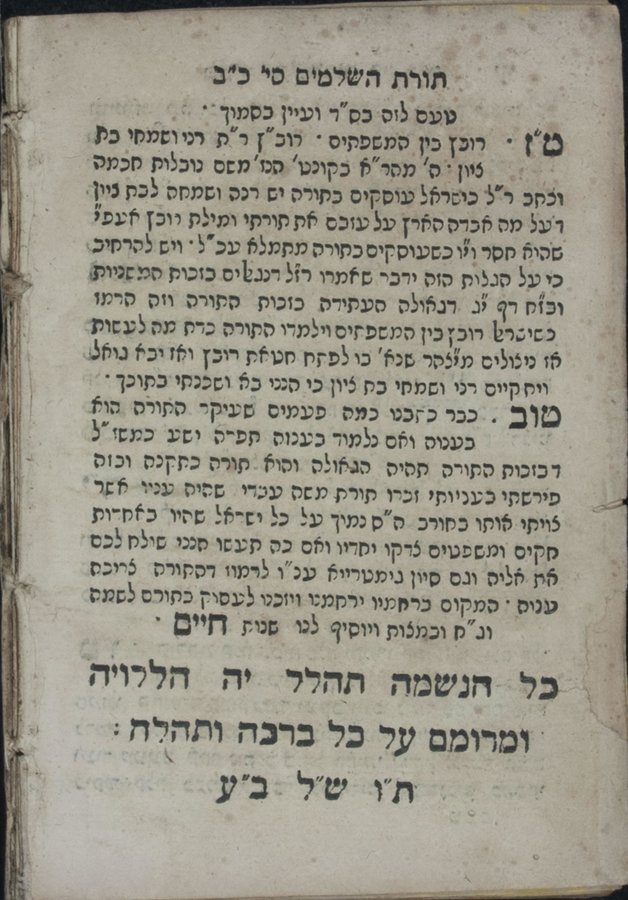 תורת השלמים סי' כ"ב
טעם לזה בס"ד ועיין בסמוך ·
ט"ז · רובץ בין המשפתים · רוב"ץ ר"ת רני ושמחי בת
ציון · ה' מהר"א בקונט' הנז' משם נובלות חכמה
וכתב ר"ל כישראל עוסקים בתורה יש רנה ושמחה לבת ציון
דעל מה אבדה הארץ על עזבם את תורתי ומילת רובץ אעפ"י
שהוא חסר וי"ו כשעוסקים בתורה מתמלא עכ"ל · ויש להרחיב
כי על הגלות הזה ידבר שאמרו רז"ל דנגאלים בזכות המשניות
ובז"ח דף י"ג דגאולה העתידה בזכות התורה וזה הרמז
כשישראל רובץ בין המשפתים וילמדו התורה כדת מה לעשות
אז ניצולים מיצהר שנא' בו לפתח חטאת רובץ ואז יבא גואל
ויתקיים רני ושמחי בת ציון כי הנני בא ושכנתי בתוכך ·
טוב . כבר כתבנו כמה פעמים שעיקר התורה הוא
בענוה ואם נלמוד בענוה תפרה ישע כמשז"ל
דבזכות התורה תהיה הגאולה והוא תורה כתקנה וכזה
פירשתי בעניותי זכרו תורת משה עבדי שהיה עניו אשר
צויתי אותו בחורב ה"ס נמיך על כל ישראל שהיו באחדות
חקים ומשפטים צדקו יחדיו ואם כה תעשו הנני שולח לכם
את אליה וגם סיון גימטרייא ענ"ו לרמוז דהתורה צריכה
ענוה · המקום ברחמיו ירחמנו ויזכנו לעסוק בתורה לשמה
וג"ח ובמצות ויוסיף לנו שנות חיים ·
כל הנשמה תהלל יה הללויה
ומרומם על כל ברכה ותהלה :
ת"ו ש"ל ב"ע